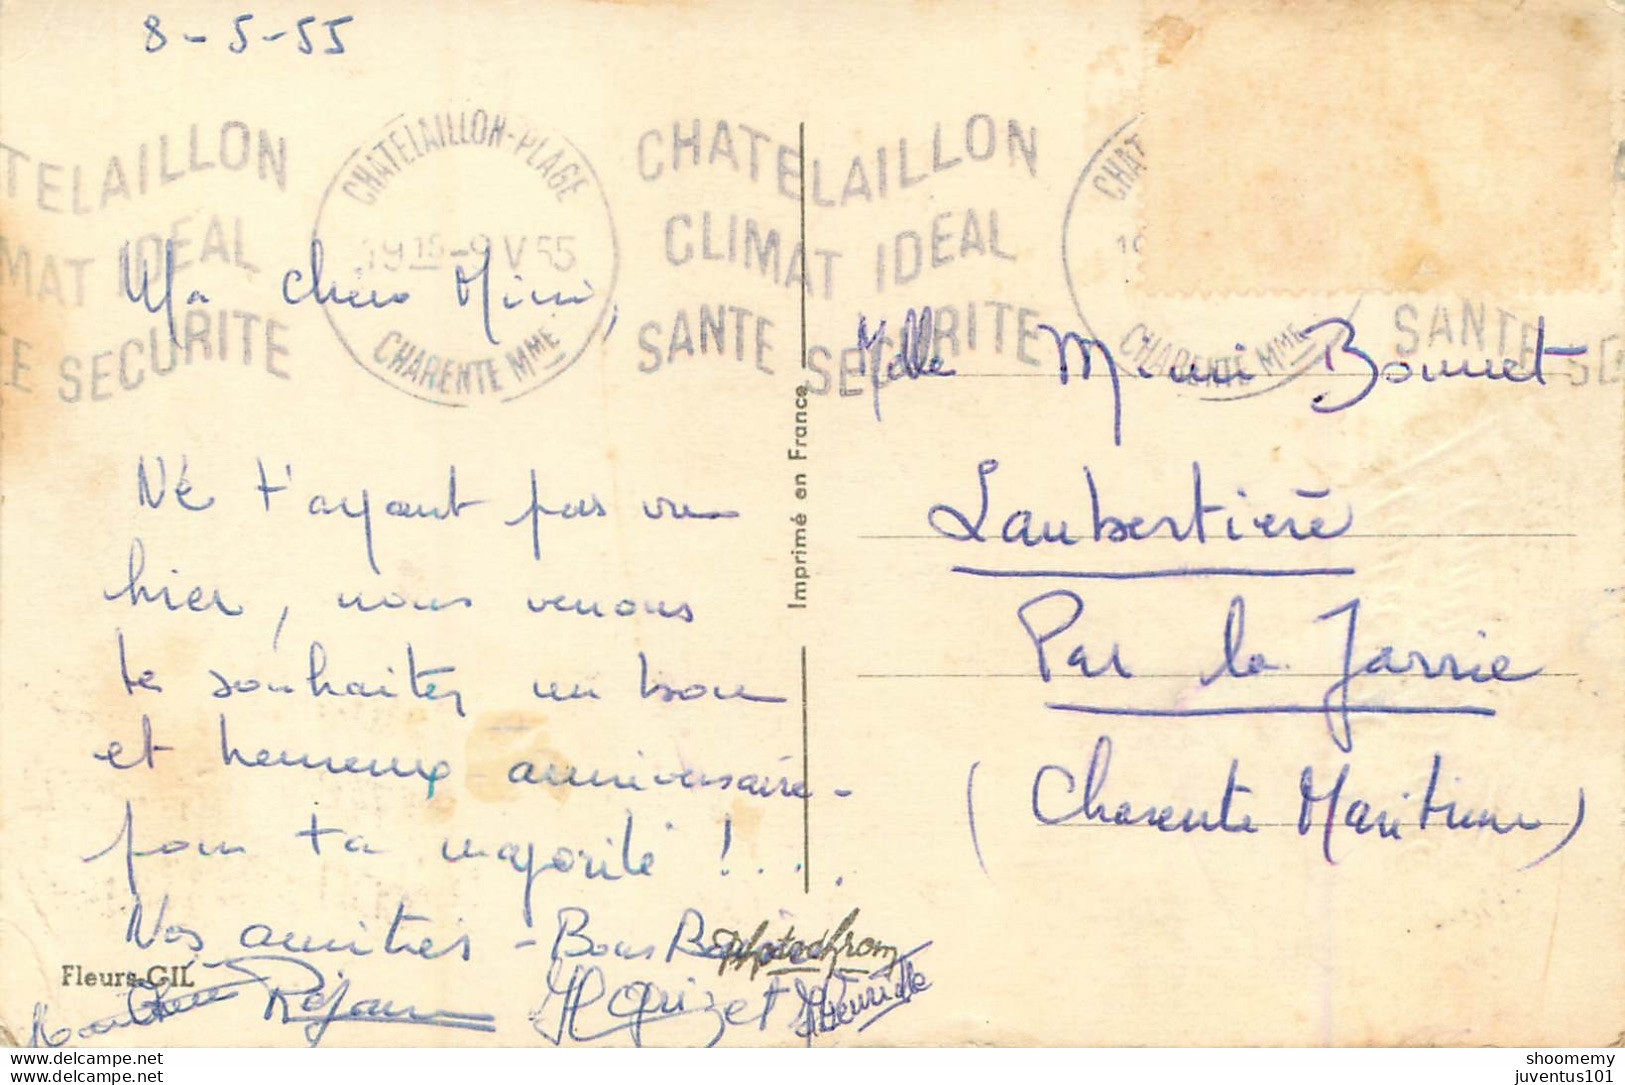 8-5-55
TELAILLON
MAT IDEAL
E SECURITE
CHATELAILLON-PLAGE
1915-9 V 55
CHARENTE MME
CHATELAILLON
CLIMAT IDEAL
SANTE SECURITE
CHAT
CHARENTE MME
SANTE SE
Ma chère Mimi,
Né t'ayant pas vue
hier, nous venons
te souhaiter un bon
et heureux anniversaire-
pour ta majorité !...
Nos amitiés - Bons
Fleurs-GIL
Photochrom
et
Imprimé en France
Melle Mimi Bonnet
Laubertière
Par la Jarrie
(Charente Maritime)
made with Icecream photo editor
shoomemy
juventus101